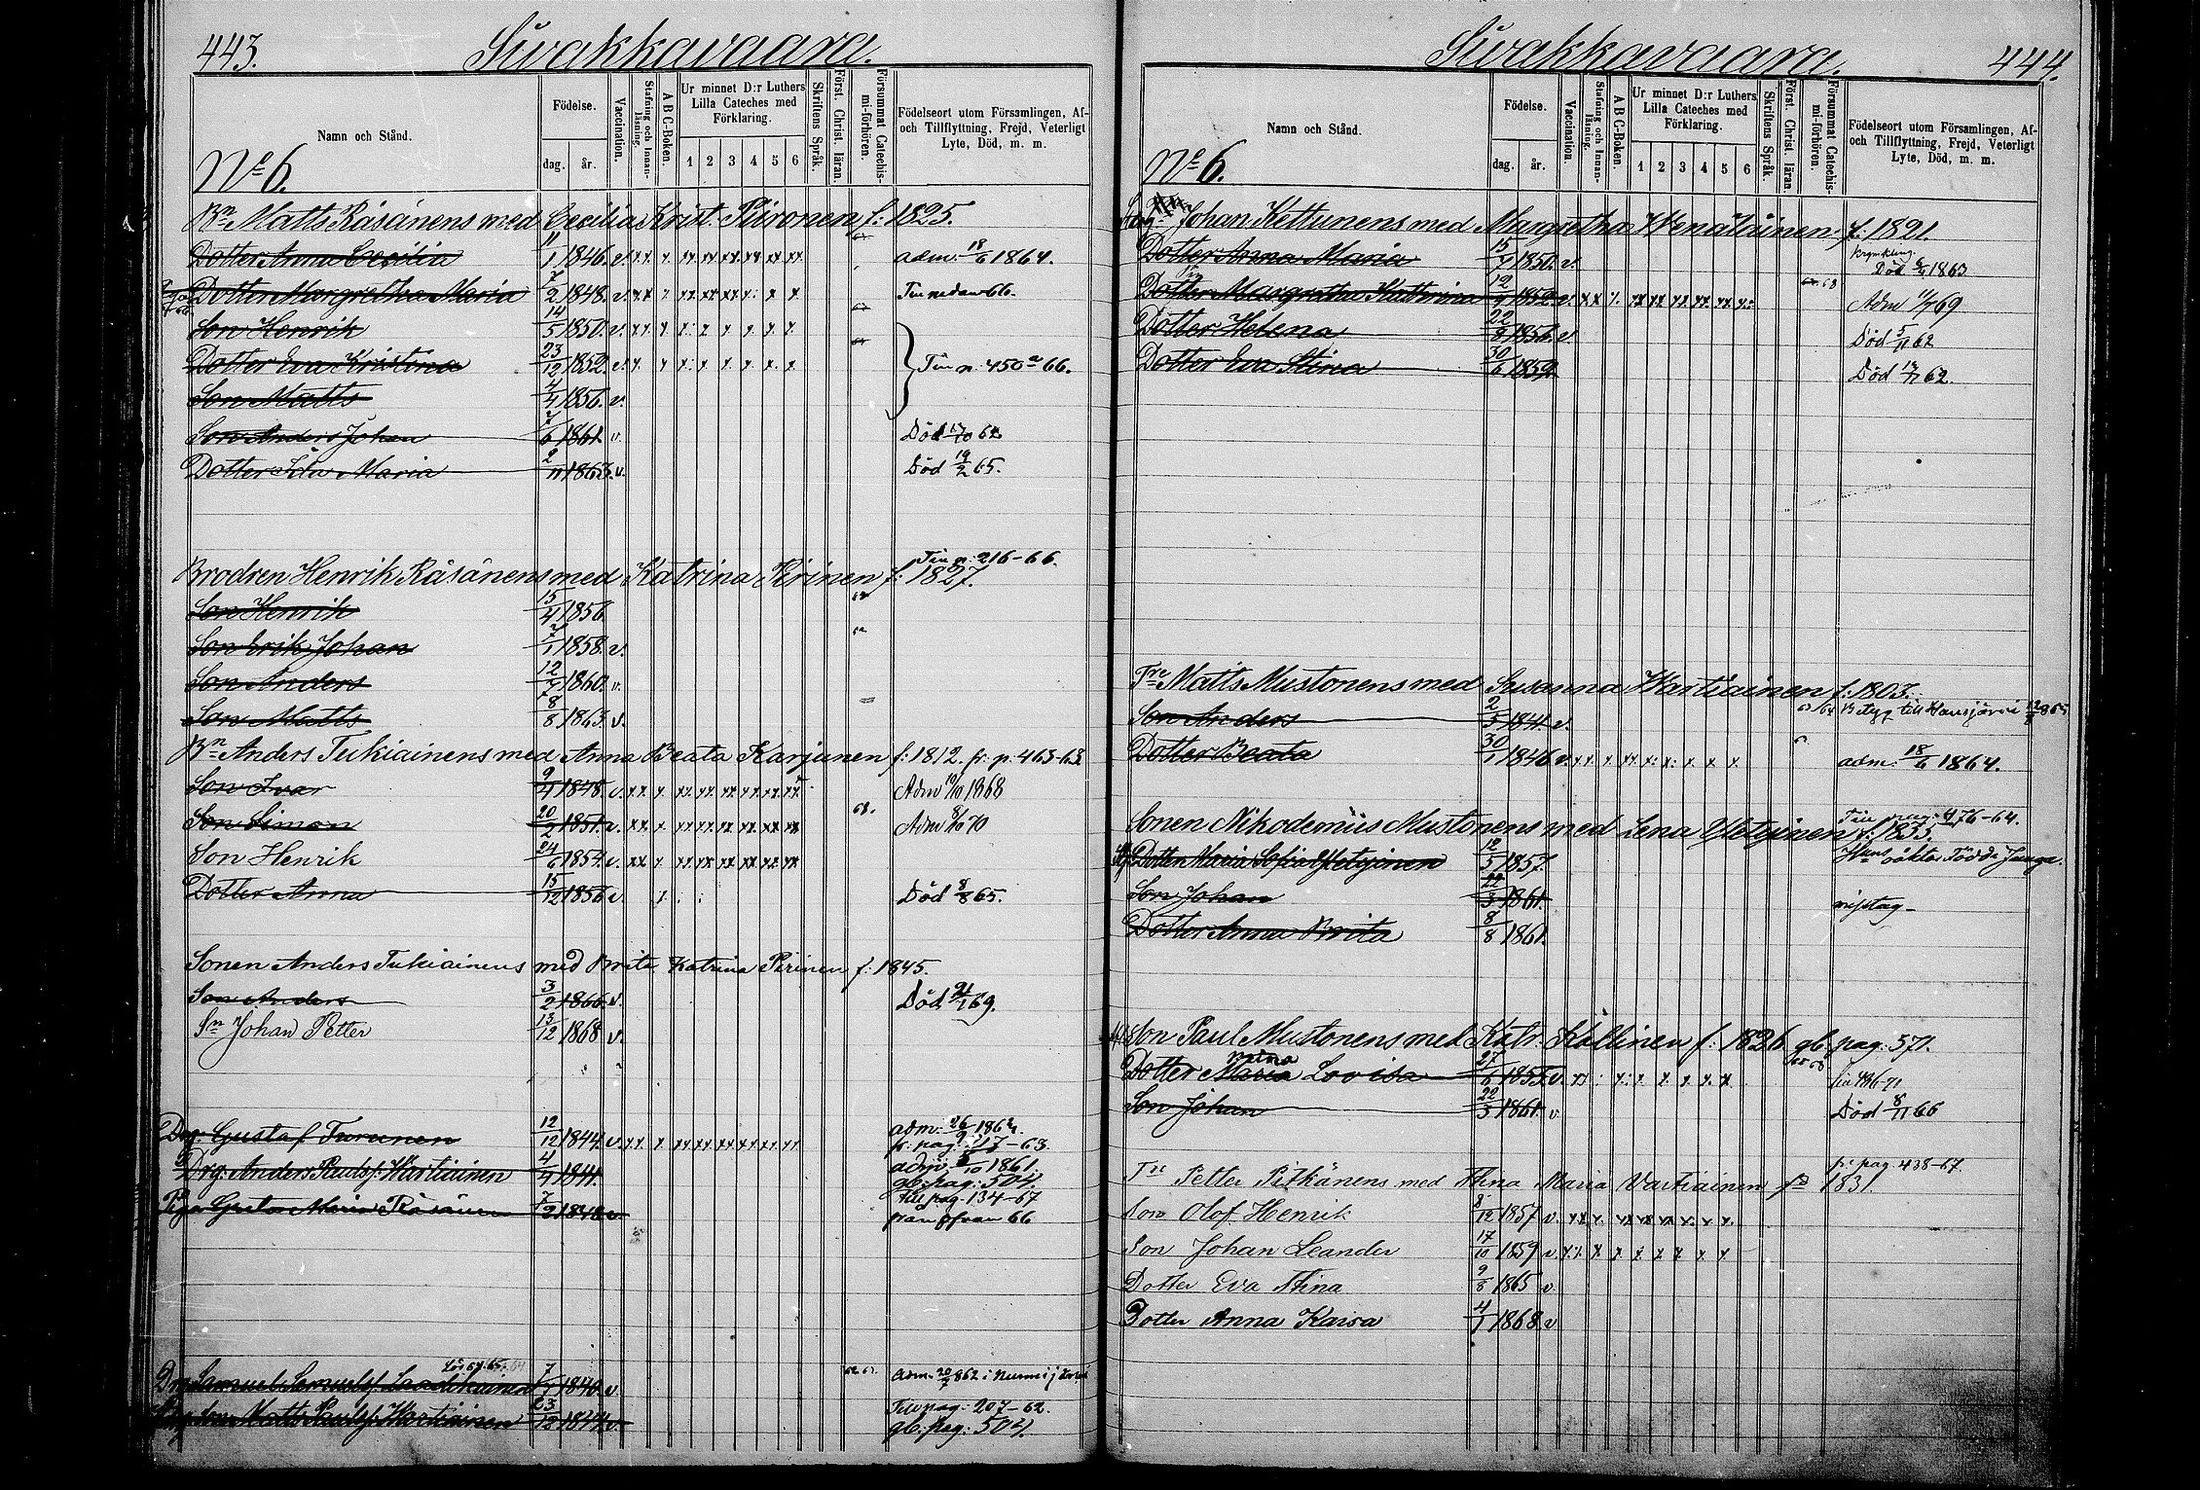 443. Sivakkavaara.
Namn och Stånd.
Födelse.
dag. år.
Vaccination.
Stafning och Innanläsning.
A B C-Boken.
Ur minnet D:r Luthers Lilla Cateches med Förklaring.
1 2 3 4 5 6
Skriftens Språk.
Först. Christ. läran.
Försummat Catechismi-förhören.
Födelseort utom Församlingen, Af- och Tillflyttning, Frejd, Veterligt Lyte, Död, m. m.
No 6.
Bn Matts Räsänens med Cecilia Krist. Piironen f: 1825.
Dotter Anna Cecilia 11/1 1846. v. adm. 18/6 1864.
Dotter Margretha Maria 7/2 1848. v. Tin nedan 66.
Son Henrik 14/5 1850. v.
Dotter Eva Kristina 23/12 1852. v. Tin p. 450 a 66.
Son Matts 4/4 1856. v.
Son Anders Johan 7/6 1861. v. Död 62
Dotter Ida Maria 2/11 1863. v. Död 19/2 65.
Tin p: 216-66.
Brodren Henrik Räsänens med Katrina Pirinen f: 1827.
Son Henrik 15/4 1856.
Son Erik Johan 7/1 1858. v.
Son Anders 12/7 1860. v.
Son Matts 8/8 1863. v.
Bn Anders Tukiainens med Anna Beata Karjunen f: 1812. fr. p. 463-63
Son Ivar 9/4 1848. v. Adm 10/10 1868
Son Simon 20/2 1851. v. 68. Adm 8/10 70
Son Henrik 24/6 1854. v.
Dotter Anna 15/12 1856 v. Död 8/8 65.
Sonen Anders Tukiainens med Brita Katrina Pirinen f: 1845.
Son Anders 3/2 1866. v. Död 21/1 69.
Sn Johan Petter 13/12 1868 v.
Drg. Gustaf Turunen 12/12 1844. v. adm: 26/9 1862.
fr. pag. 217-63
Drg. Anders Paulsf. Wartiainen 4/4 1841. adm. 5/10 1861.
gb. pag: 504.
Till pag. 134-67
Pig. Greta Maria Räsänen 7/2 1848 v från ofvan 66
64. 65.
Dr. Samuel Samuelsf. 7/7 1840. v. adm. 20/7 862 i Nurmijärvi
Son Matts Paulsf. Wartiainen 23/12 1844. v. Till pag. 207-62.
gb. pag: 504.
Sivakkavaara. 444.
Namn och Stånd.
Födelse.
dag. år.
Vaccination.
Stafning och Innanläsning.
A B C-Boken.
Ur minnet D:r Luthers Lilla Cateches med Förklaring.
1 2 3 4 5 6
Skriftens Språk.
Först. Christ. läran.
Försummat Catechismi-förhören.
Födelseort utom Församlingen, Af- och Tillflyttning, Frejd, Veterligt Lyte, Död, m. m.
No 6.
Johan Kettunens med Margretha Wenäläinen f: 1821.
Dotter Anna Maria 15/7 1850. v. Död 1863
Dotter Margretha Kathrina 12/9 1852. v. 68 Adm 11/7 69
Dotter Helena 22/8 1856. v. Död 5/11 62
Dotter Eva Stina 30/6 1859. Död 62.
Tre Matts Mustonens med Susanna Wartiainen f: 1803.
Son Anders 2/5 1841. v. 63/64 Betyg till
Dotter Beata 30/1 1846. v. adm. 18/6 1864.
Tin pag. 476-64.
Sonen Nikodemus Mustonens med Lena Yletyinen f: 1833.
Dotter Maria Sofia Yletyinen 12/5 1857. Hans oäkta födde
Son Johan 22/3 1861. misstag
Dotter Anna Brita 8/8 1861.
Son Paul Mustonens med Katr. Källinen f: 1826 gb. pag. 571.
Dotter Maria Lovisa 27/6 1855. v.
Son Johan 22/3 1861. v Död 8/11 66
fr. pag. 438-67.
Tre Petter Pitkänens med Stina Maria Vartiainen fd 1831.
Son Olof Henrik 8/12 1857 v.
Son Johan Leander 17/10 1859 v.
Dotter Eva Stina 9/8 1865 v
Dotter Anna Kaisa 4/1 1868 v